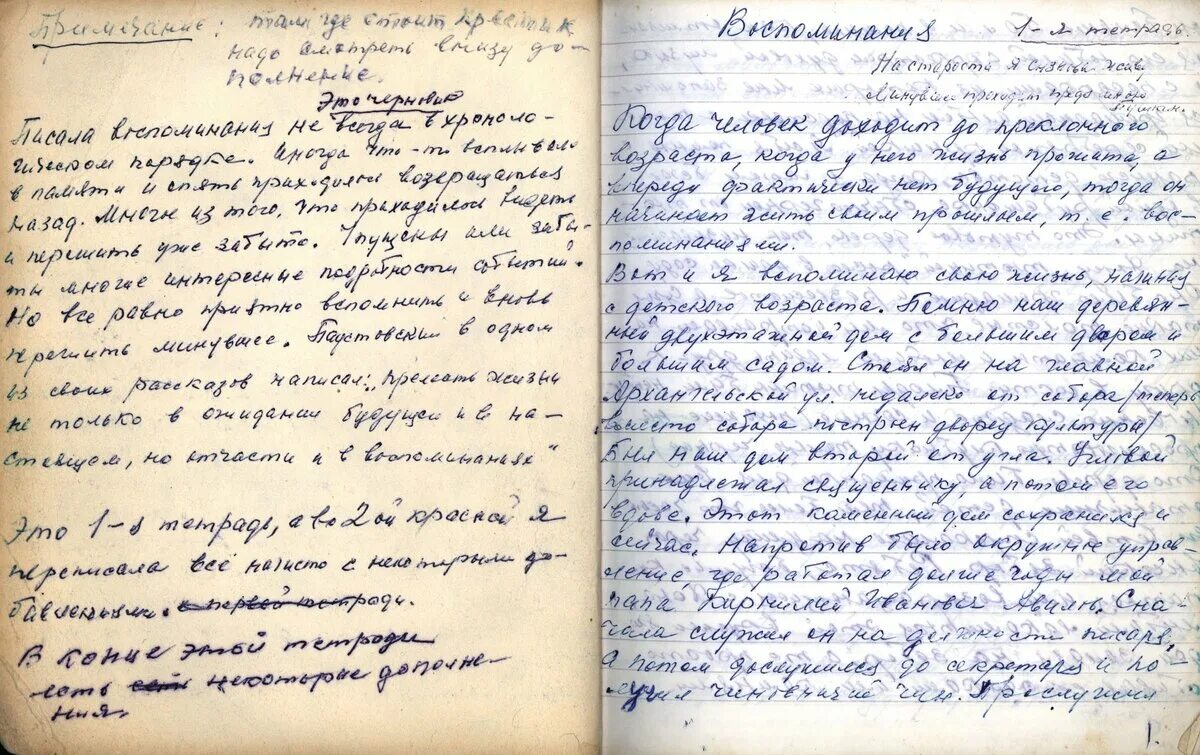 Примечание: там где стоит крестик
надо смотреть внизу до-
полнение.
Это черновик
Писала воспоминания не всегда в хроноло-
гическом порядке. Иногда что-то всплывало
в памяти и опять приходилось возвращаться
назад. Многое из того, что приходилось видеть
и пережить уже забыто. Упущены или забы-
ты многие интересные подробности событий.
Но все равно приятно вспомнить и вновь
пережить минувшее. Паустовский в одном
из своих рассказов написал: "Прелесть жизни
не только в ожидании будущего и в на-
стоящем, но отчасти и в воспоминаниях"
Это 1-я тетрадь, а во 2ой красной я
переписала всё начисто с некоторыми до-
бавлениями. в первой тетради.
В конце этой тетради
есть есть некоторые дополне-
ния.
Воспоминания 1-я тетрадь.
На старости я сызнова живу
Минувшее проходит предо мною
Пушкин.
Когда человек доходит до преклонного
возраста, когда у него жизнь прожита, а
впереди фактически нет будущего, тогда он
начинает жить своим прошлым, т.е. вос-
поминаниями.
Вот и я вспоминаю свою жизнь, начиная
с детского возраста. Помню наш деревян-
ный двухэтажный дом с большим двором и
большим садом. Стоял он на главной
Архангельской ул. недалеко от собора /теперь
вместо собора построен дворец культуры/
Был наш дом второй от угла. Угловой
принадлежал священнику, а потом его
вдове. Этот каменный дом сохранился и
сейчас. Напротив было окружное управ-
ление, где работал долгие годы мой
папа Иванович Сна-
чала служил он на должности писаря,
а потом дослужился до секретаря и по-
лучил чиновничий чин. Прослужил
1.